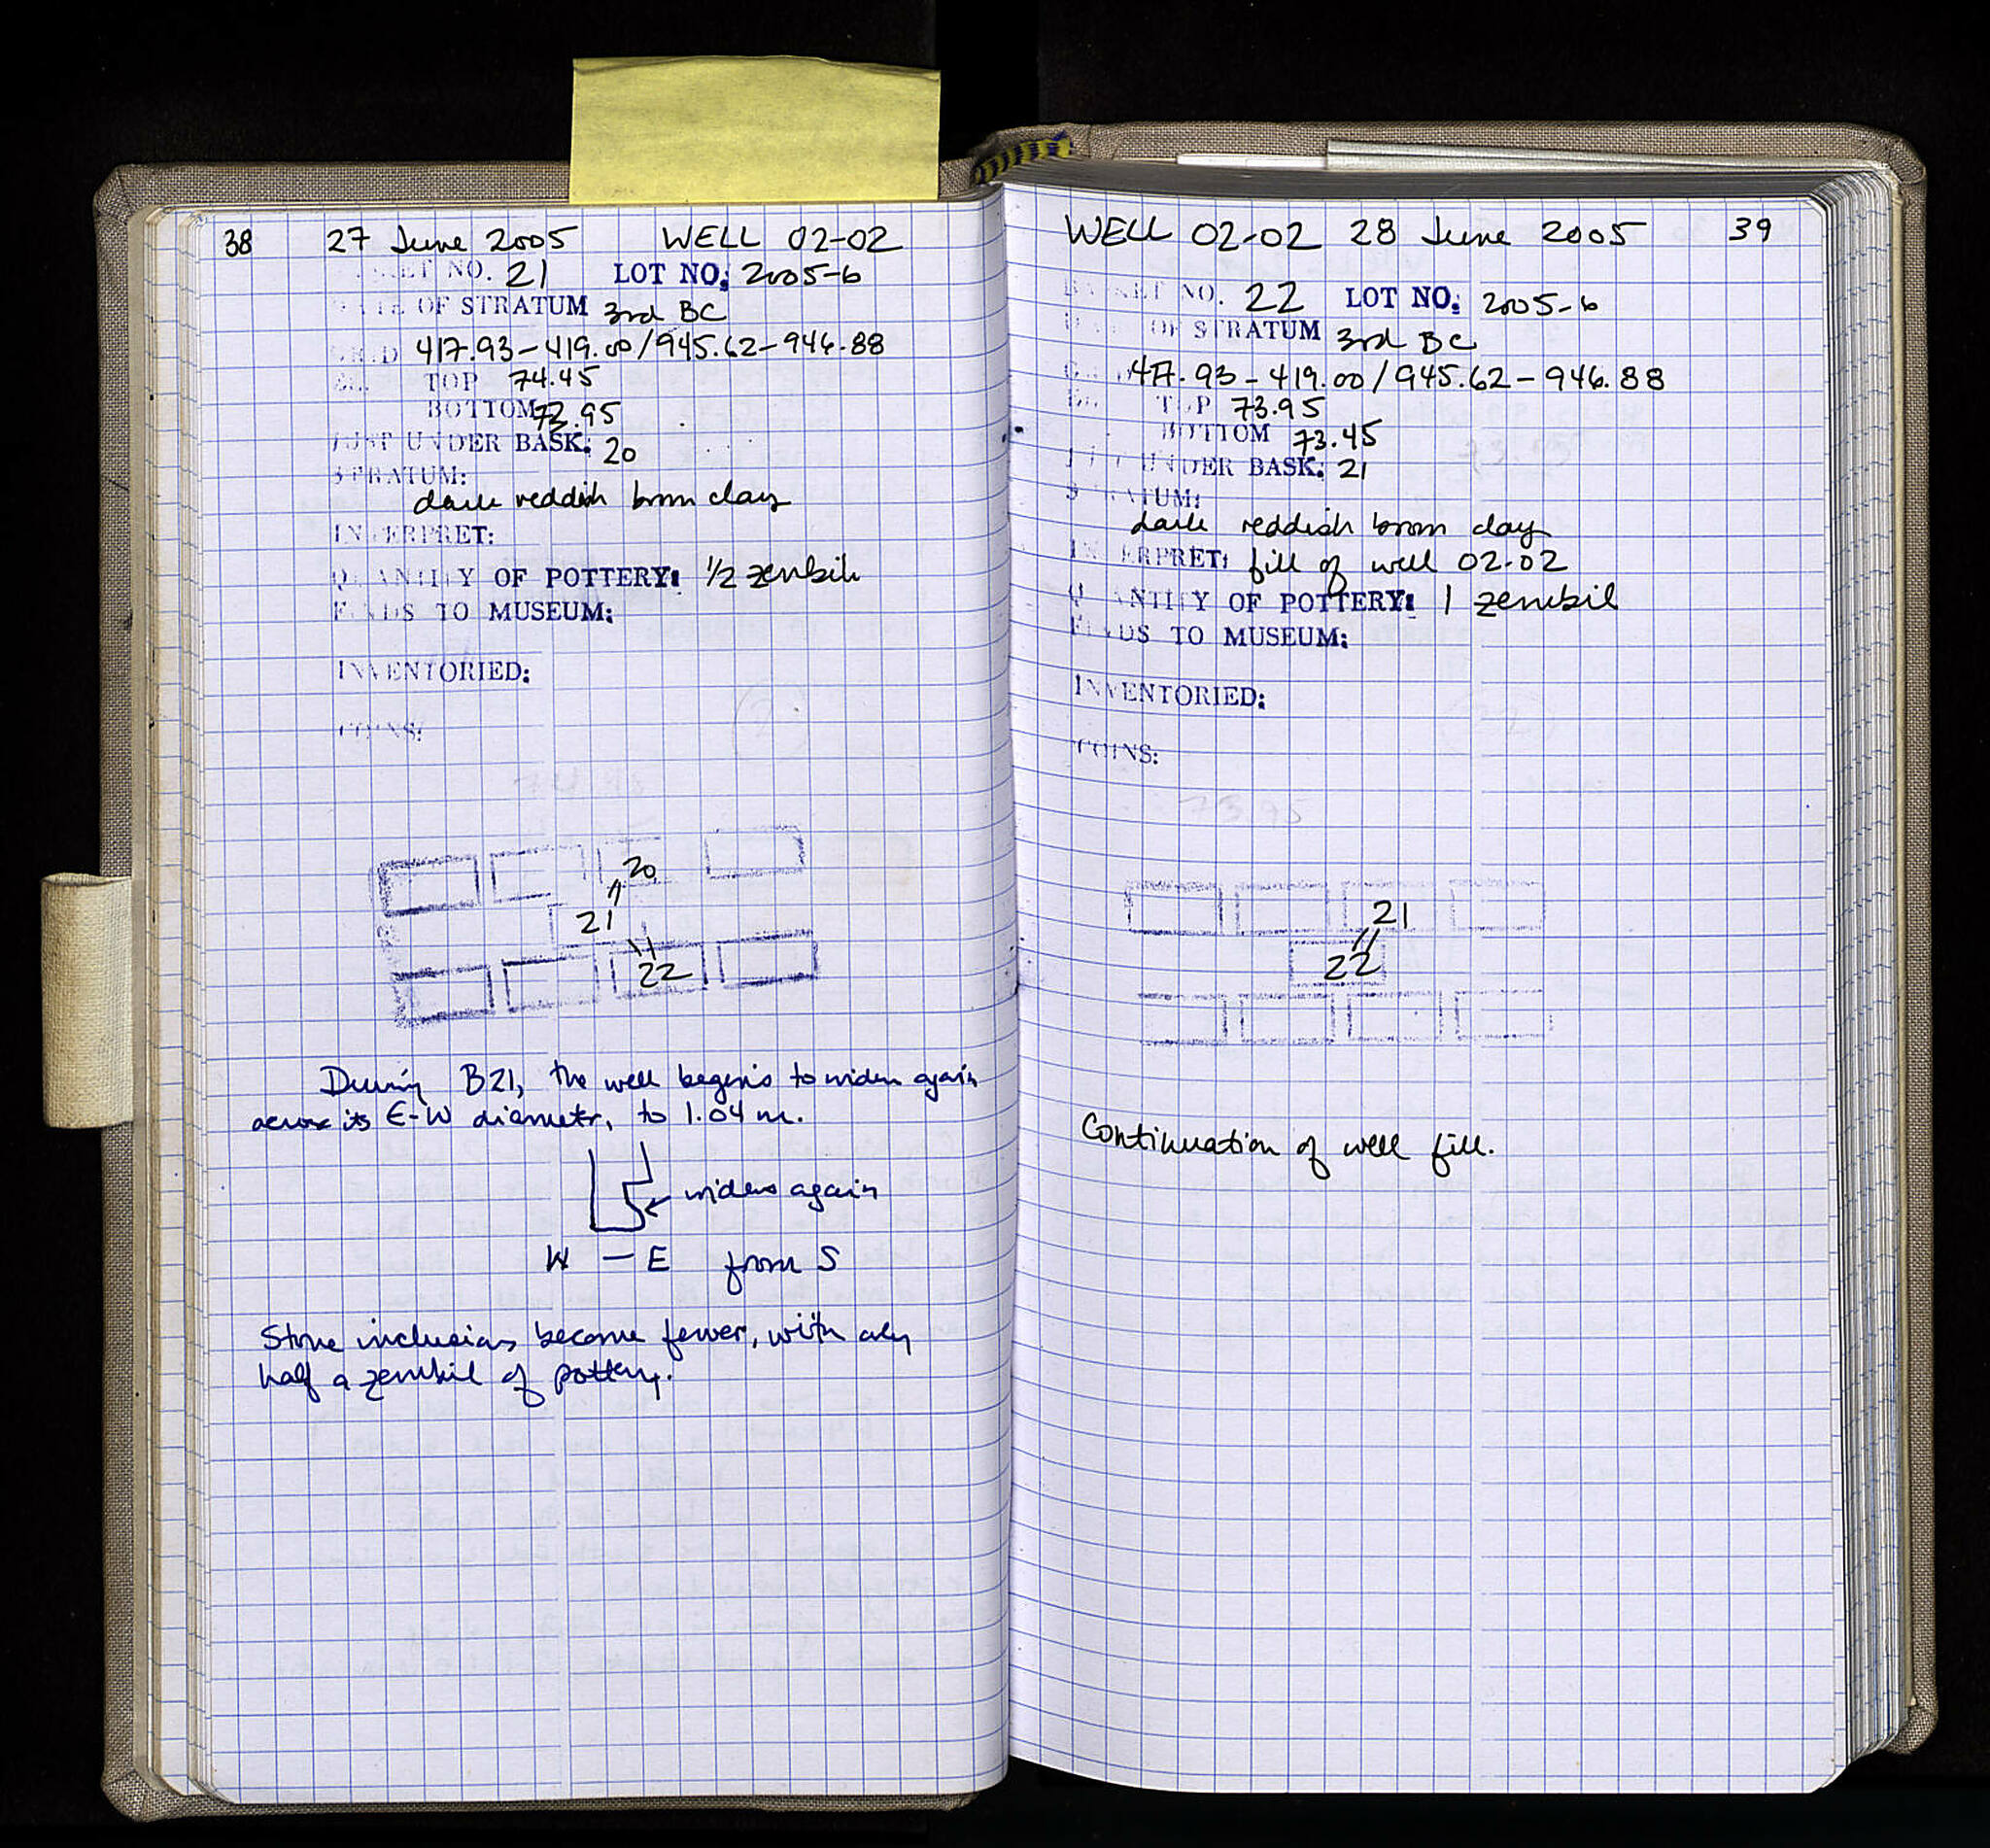 38 27 June 2005 WELL 02-02
BASKET NO. 21 LOT NO: 2005-6
DATE OF STRATUM 3rd BC
GRID 417.93-419.00/945.62-946.88
EL. TOP 74.45
BOTTOM 73.95
JUST UNDER BASK: 20
STRATUM:
dark reddish brown clay
INTERPRET:
QUANTITY OF POTTERY: 1/2 zembil
FINDS TO MUSEUM:
INVENTORIED:
COINS:
20
21
22
During B21, the well begins to widen again
across its E-W diameter, to 1.04 m.
widens again
W — E from S
Stone inclusions become fewer, with only
half a zembil of pottery.
WELL 02-02 28 June 2005 39
BASKET NO. 22 LOT NO: 2005-6
DATE OF STRATUM 3rd BC
GRID 417.93-419.00/945.62-946.88
EL. TOP 73.95
BOTTOM 73.45
JUST UNDER BASK: 21
STRATUM:
dark reddish brown clay
INTERPRET: fill of well 02-02
QUANTITY OF POTTERY: 1 zembil
FINDS TO MUSEUM:
INVENTORIED:
COINS:
21
22
Continuation of well fill.